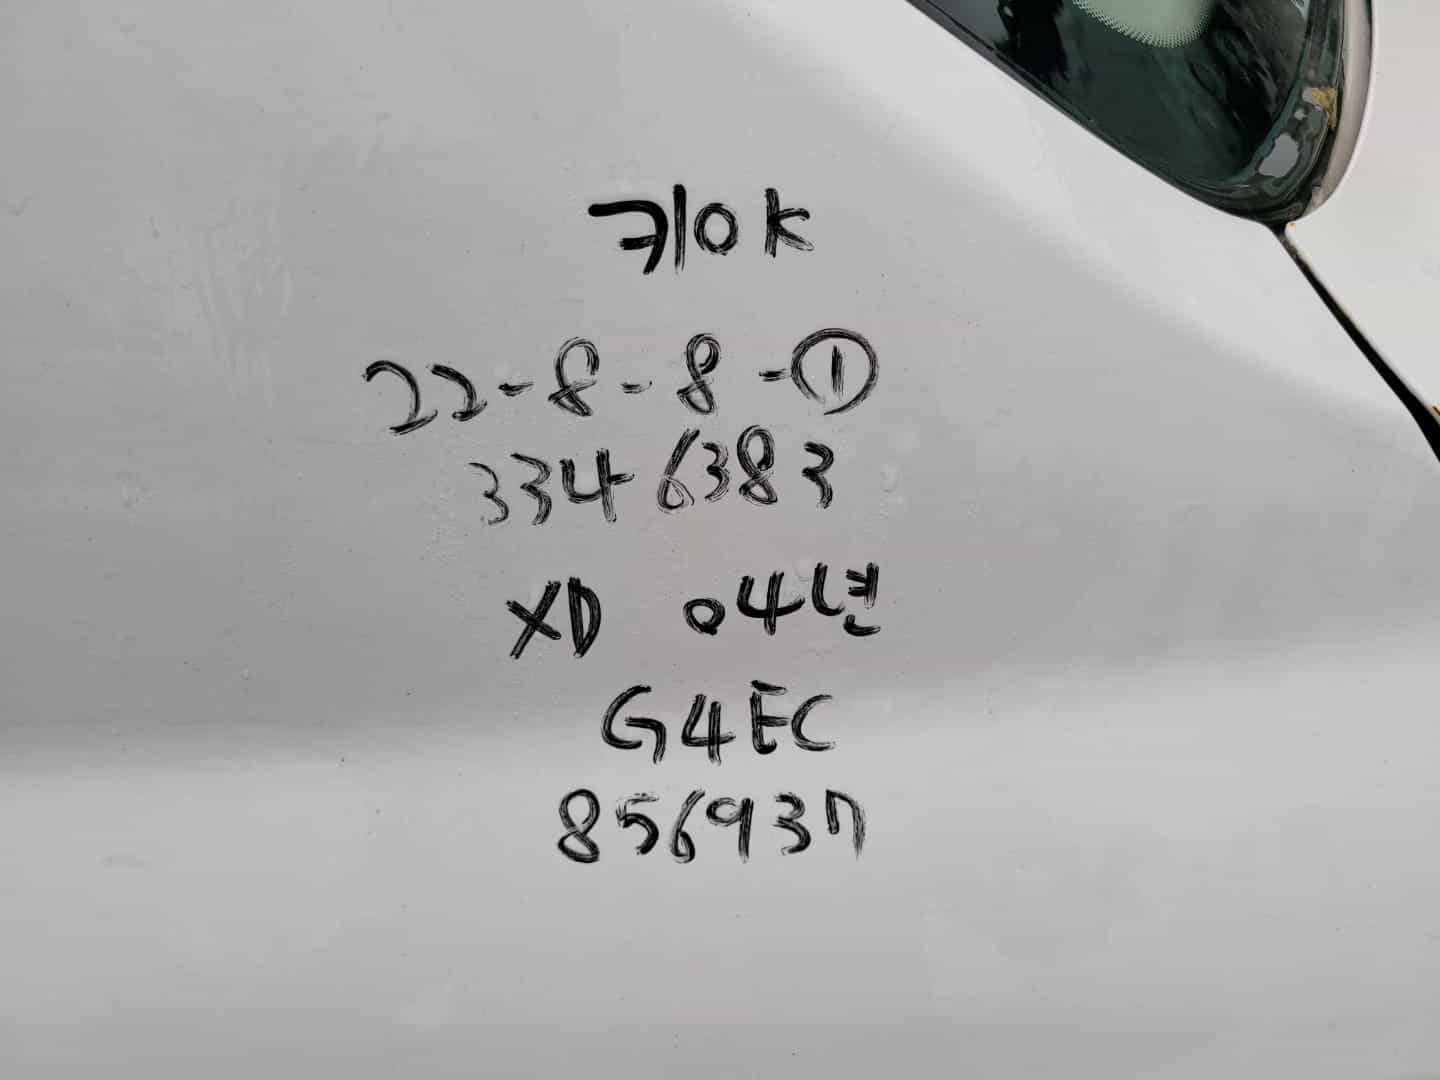 키0K
22-8-8-①
3346383
XD 04년
G4EC
856937